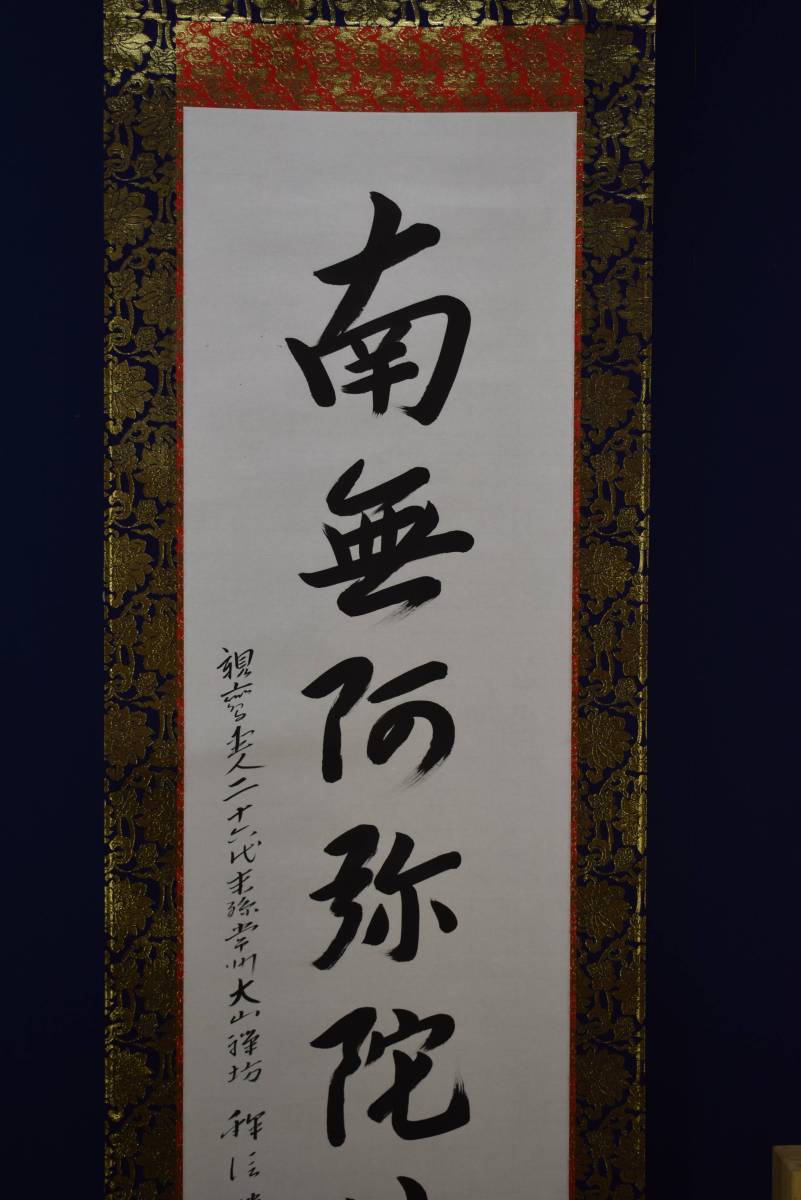 南無阿弥陀
親鸞聖人二十六代末孫常州大山禅坊 釋信